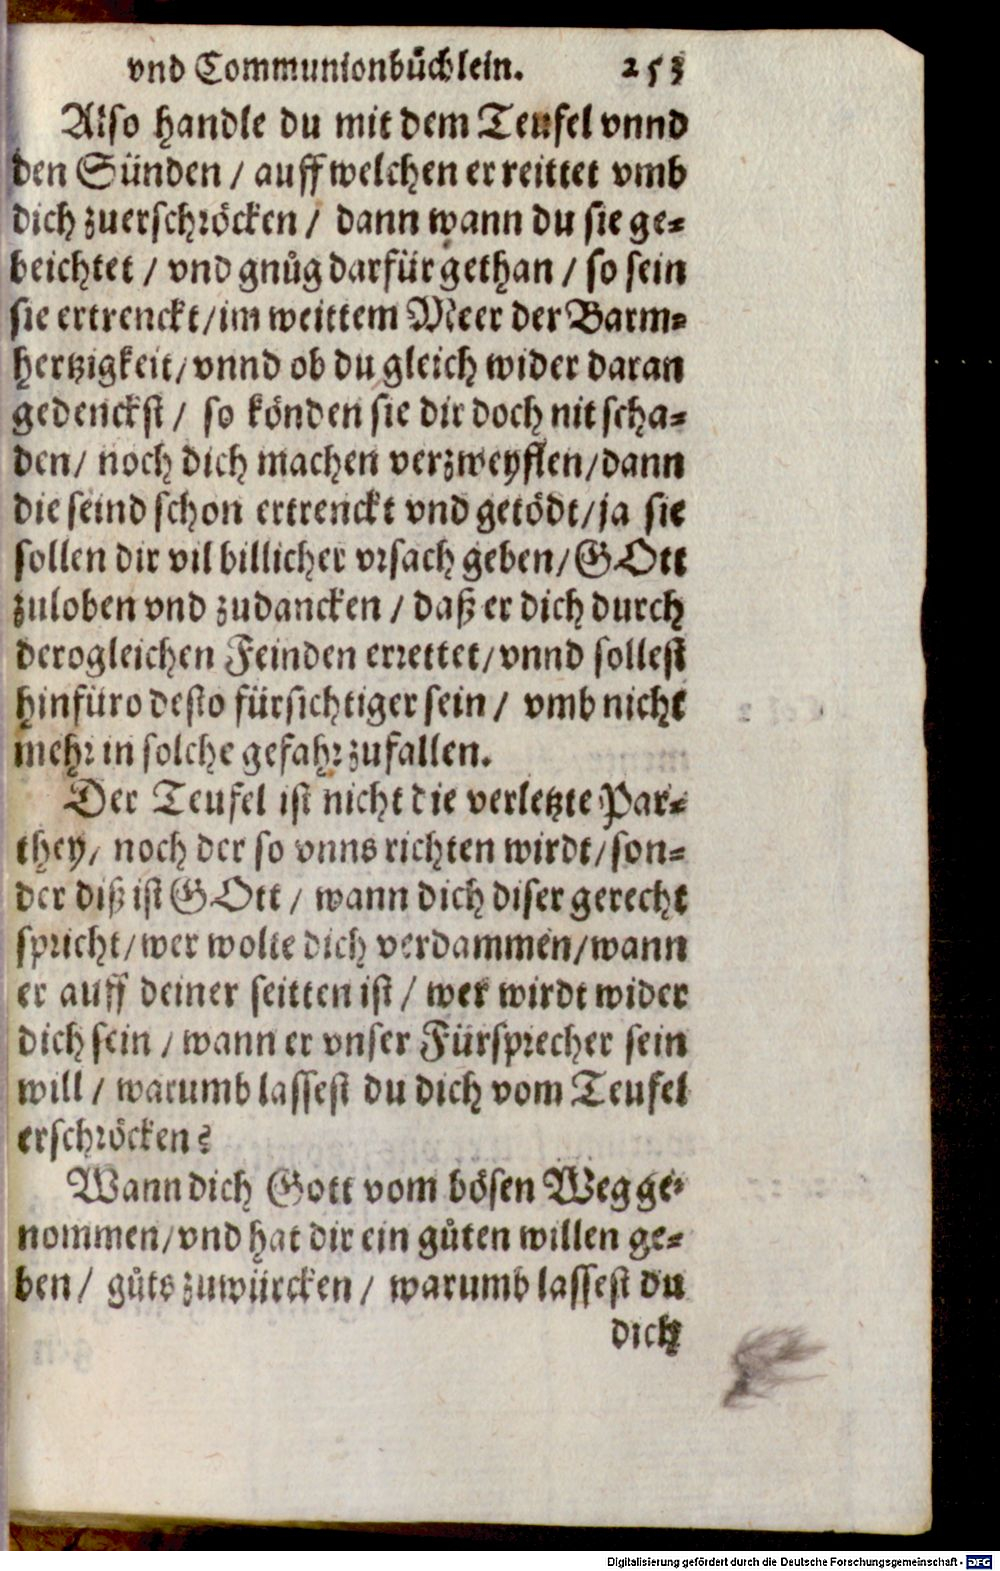 vnd Communionbüchlein. 253
Also handle du mit dem Teufel vnnd
den Sünden / auff welchen er reittet vmb
dich zuerschröcken / dann wann du sie ge-
beichtet / vnd gnůg darfür gethan / so sein
sie ertrenckt/im weittem Meer der Barm-
hertzigkeit/vnnd ob du gleich wider daran
gedenckst / so könden sie dir doch nit scha-
den/ noch dich machen verzweyflen/dann
die seind schon ertrenckt vnd getödt/ja sie
sollen dir vil billicher vrsach geben/GOtt
zuloben vnd zudancken / daß er dich durch
derogleichen Feinden errettet/vnnd sollest
hinfüro desto fürsichtiger sein / vmb nicht
mehr in solche gefahr zufallen.
Der Teufel ist nicht die verletzte Par-
they, noch der so vnns richten wirdt/son-
der diß ist GOtt / wann dich diser gerecht
spricht/wer wolte dich verdammen/wann
er auff deiner seitten ist / wer wirdt wider
dich sein / wann er vnser Fürsprecher sein
will / warumb lassest du dich vom Teufel
erschröcken?
Wann dich Gott vom bösen Weg ge-
nommen/vnd hat dir ein gůten willen ge-
ben / gůts zuwürcken / warumb lassest du
dich
Digitalisierung gefördert durch die Deutsche Forschungsgemeinschaft - DFG